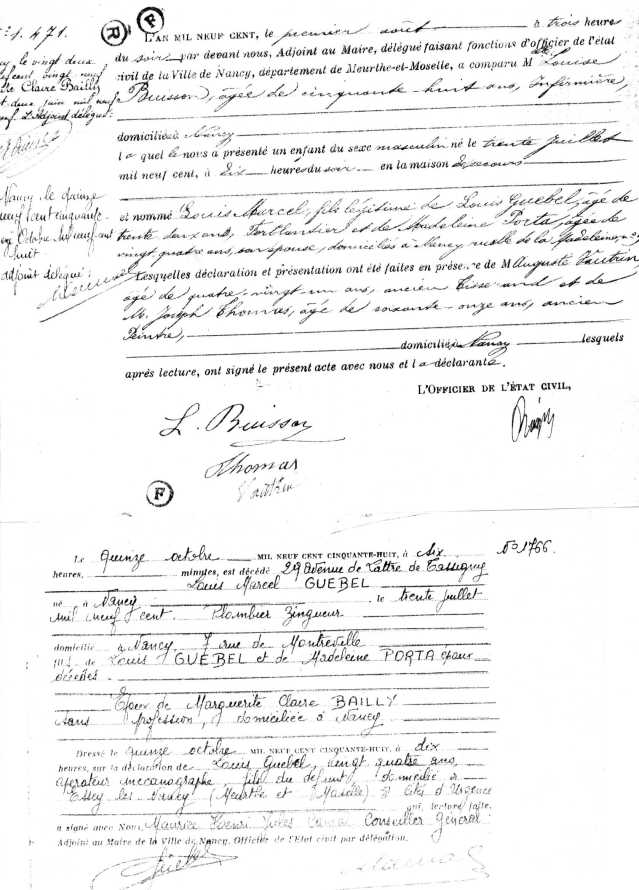 N° 1.471.
F
R
L'AN MIL NEUF CENT, le premier août à trois heures
du soir, par devant nous, Adjoint au Maire, délégué faisant fonctions d'officier de l'état
civil de la Ville de Nancy, département de Meurthe-et-Moselle, a comparu M Louise
Buisson, âgée de cinquante-huit ans, Infirmière,
domiciliée à Nancy
la quelle nous a présenté un enfant du sexe masculin né le trente Juillet
mil neuf cent, à dix heures du soir en la maison de secours
et nommé Louis Marcel, fils légitime de Louis Guebel, âgé de
trente deux ans, et de Madeleine Porta, âgée de
vingt quatre ans, son épouse, domiciliés à Nancy ruelle de la Madeleine
Lesquelles déclaration et présentation ont été faites en présence de M Auguste Vautrin
âgé de quatre-vingt-un ans, ancien Tisserand et de
M. Joseph Thomas, âgé de soixante-onze ans, ancien
Peintre,
domiciliés à Nancy lesquels
après lecture, ont signé le présent acte avec nous et la déclarante.
L'OFFICIER DE L'ÉTAT CIVIL,
le vingt deux
vingt neuf
Claire Bailly
deux juin mil neuf
L'Adjoint délégué:
Nancy le quinze
neuf cent cinquante
Octobre
huit
adjoint délégué:
L. Buisson
Thomas
Vautrin
F
N° 1766.
Le quinze octobre MIL NEUF CENT CINQUANTE-HUIT, à dix
heures, minutes, est décédé 29 Avenue de Lattre de Tassigny
Louis Marcel GUEBEL
né à Nancy, le trente juillet
mil neuf cent. Plombier Zingueur
domicilié à Nancy, 7 rue de Montreville
fils de Louis GUEBEL et de Madeleine PORTA époux
décédés
Epoux de Marguerite Claire BAILLY
sans profession, domiciliée à Nancy
Dressé le quinze octobre MIL NEUF CENT CINQUANTE-HUIT, à dix
heures, sur la déclaration de Louis Guebel, vingt quatre ans,
opérateur mécanographe, fils du défunt, domicilié à
Essey les Nancy (Meurthe et Moselle) cité d'Urgence
qui, lecture faite,
a signé avec Nous Maurice Henri Jules Conseiller Général
Adjoint au Maire de la Ville de Nancy, Officier de l'Etat civil par délégation.
Guebel